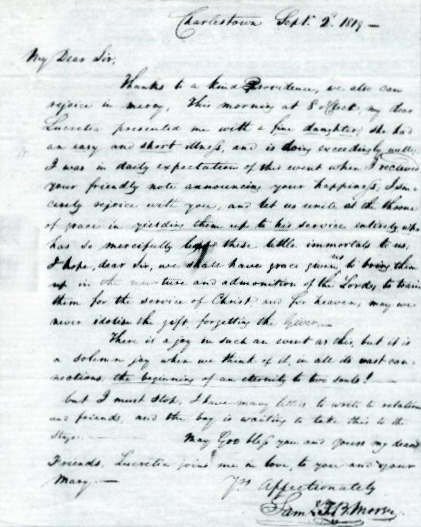 Charlestown Sept. 2d. 1819 —
My Dear Sir,
Thanks to a kind Providence, we also can
rejoice in mercy, This morning at 8 o'clock, my dear
Lucretia presented me with a fine daughter, she had
an easy and short illness, and is doing exceedingly well,
I was in daily expectation of this event when I recieved
your friendly note announcing your happiness, I sin-
cerely rejoice with you, and let us unite at the throne
of grace in yielding them up to his service entirely who
has so mercifully these little immortals to us,
I hope, dear Sir, we shall have grace given us to bring them
up in the nurture and admonition of the Lord, to train
them for the service of Christ and for heaven, may we
never idolise the gift, forgetting the Giver. —
There is a joy in such an event as this, but it is
a solemn joy when we think of it, in all its vast con-
nections, the beginning of an eternity to two souls!
but I must stop, I have many letters to write to relations
and friends, and the boy is waiting to take this to the
Stage. —
May God bless you and yours my dear
Friends, Lucretia joins me in love, to you and your
Mary. —
Yrs Affectionately
Saml. F. B. Morse.